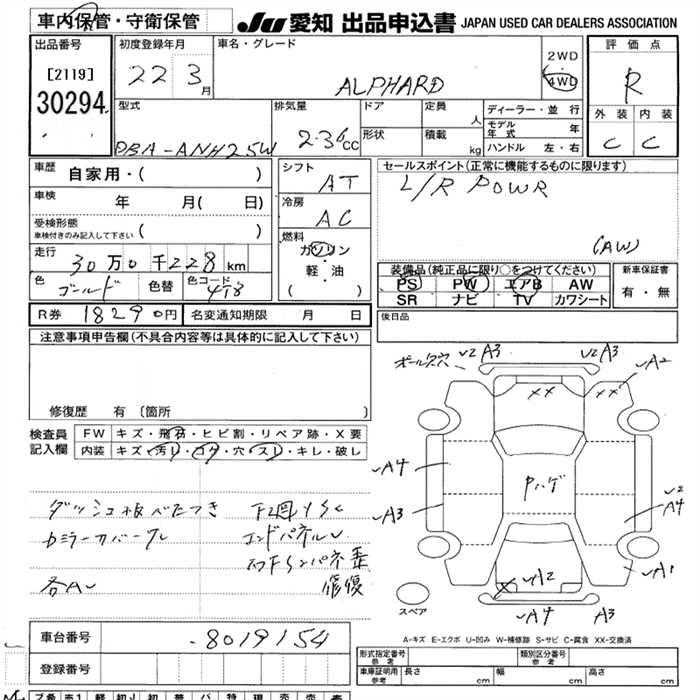 車内保管・守衛保管
JU 愛知 出品申込書 JAPAN USED CAR DEALERS ASSOCIATION
出品番号
[2119]
30294
初度登録年月
22 3月
車名・グレード
ALPHARD
2WD
4WD
評価点
R
外装 内装
C C
型式
DBA-ANH25W
排気量
2.36cc
ドア
形状
定員 人
積載 kg
ディーラー・並行
モデル年式 年
ハンドル 左・右
車歴 自家用・( )
車検 年 月( 日)
受検形態
車検付きのみ記入して下さい ( )
走行 30万0千228km
色 ゴールド 色替 色コード 4T8
R券 18290円 名変通知期限 月 日
シフト AT
冷房 AC
燃料
ガソリン
軽・油
( )
セールスポイント(正常に機能するものに限ります)
L/R POWR
(AW)
装備品(純正品に限り○をつけてください)
PS PW エアB AW
SR ナビ TV カワシート
新車保証書
有・無
後日品
注意事項申告欄(不具合内容等は具体的に記入して下さい)
修復歴 有 〔箇所 〕
検査員記入欄
FW キズ・飛石・ヒビ割・リペア跡・X要
内装 キズ・汚れ・コゲ・穴・スレ・キレ・破レ
ダッシュ板べたつき
カラーカバークレ
各AU
エンドパネルU
修復
ポール欠穴 U2 A3 U2 A3
UA2
XX XX
UA4
UA3
Pハゲ
U2
A4
UA1
UA2
UA4 A3
スペア
A-キズ E-エクボ U-凹み W-補修跡 S-サビ C-腐食 XX-交換済
車台番号 -8019154
登録番号
形式指定番号 参考
類別区分番号 参考
車庫証明用 参考 長さ cm 幅 cm 高さ cm